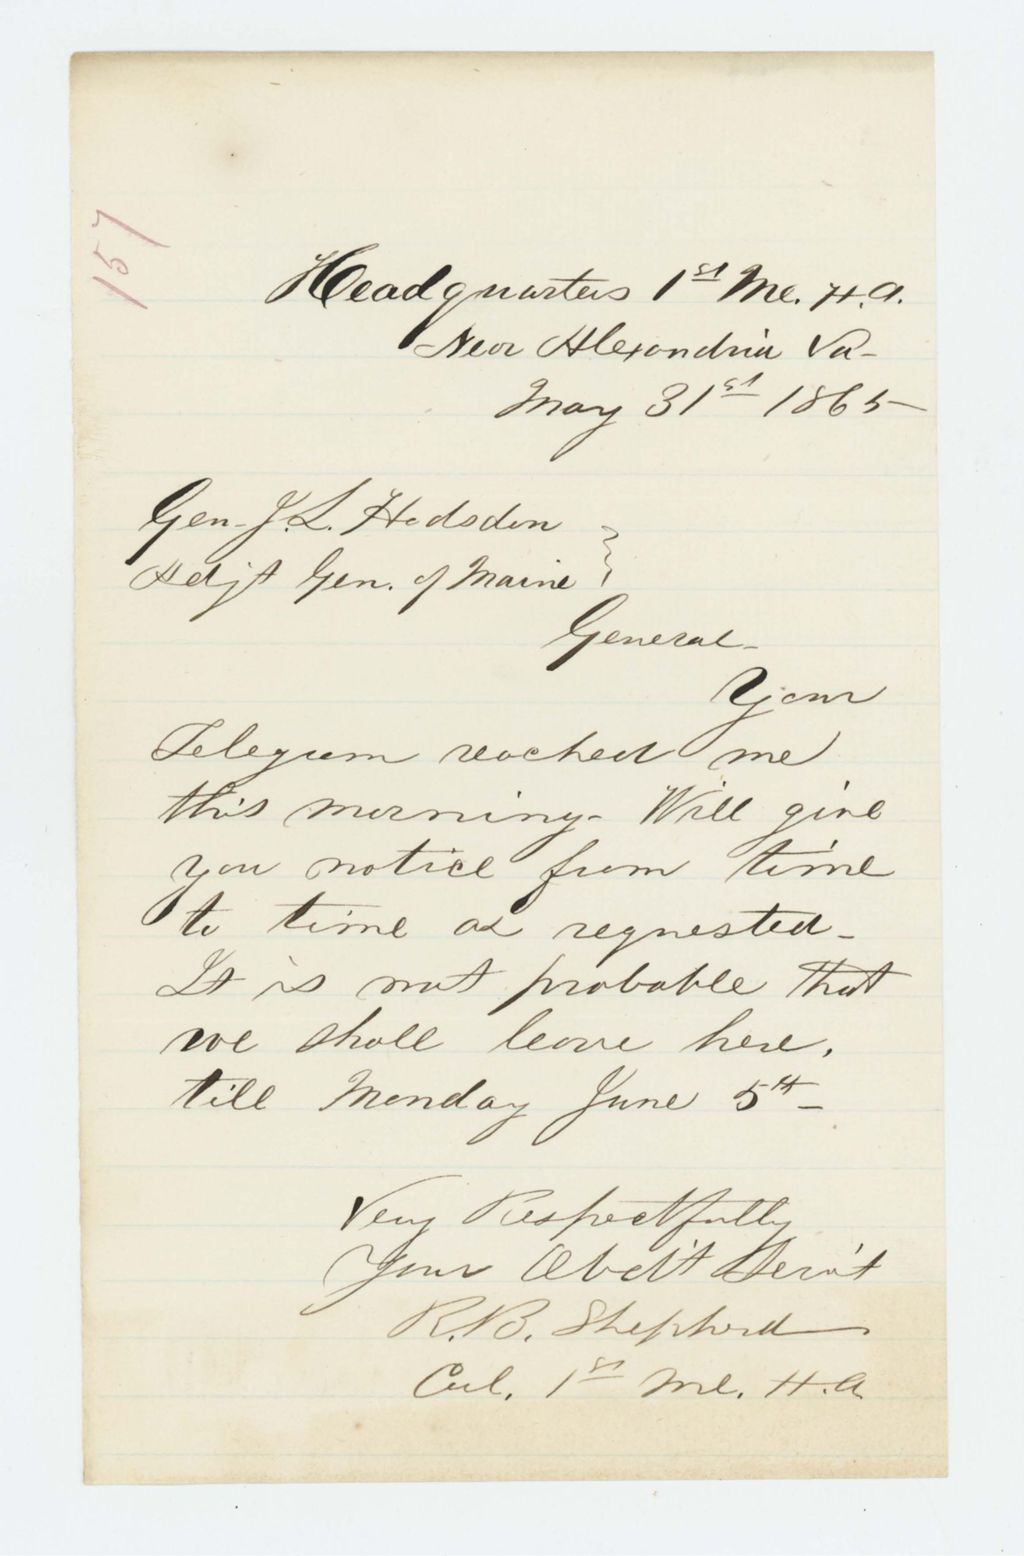 157
Headquarters 1st Me. H.A.
Near Alexandria Va-
May 31st 1865-
Gen. J. L. Hodsdon
Adjt Gen. of Maine
General-
Your
Telegram reached me
this morning- Will give
you notice from time
to time as requested-
It is not probable that
we shall leave here,
till Monday June 5th-
Very Respectfully
Your Obed't Serv't
R.B. Shepherd
Col. 1st Me. H.A.